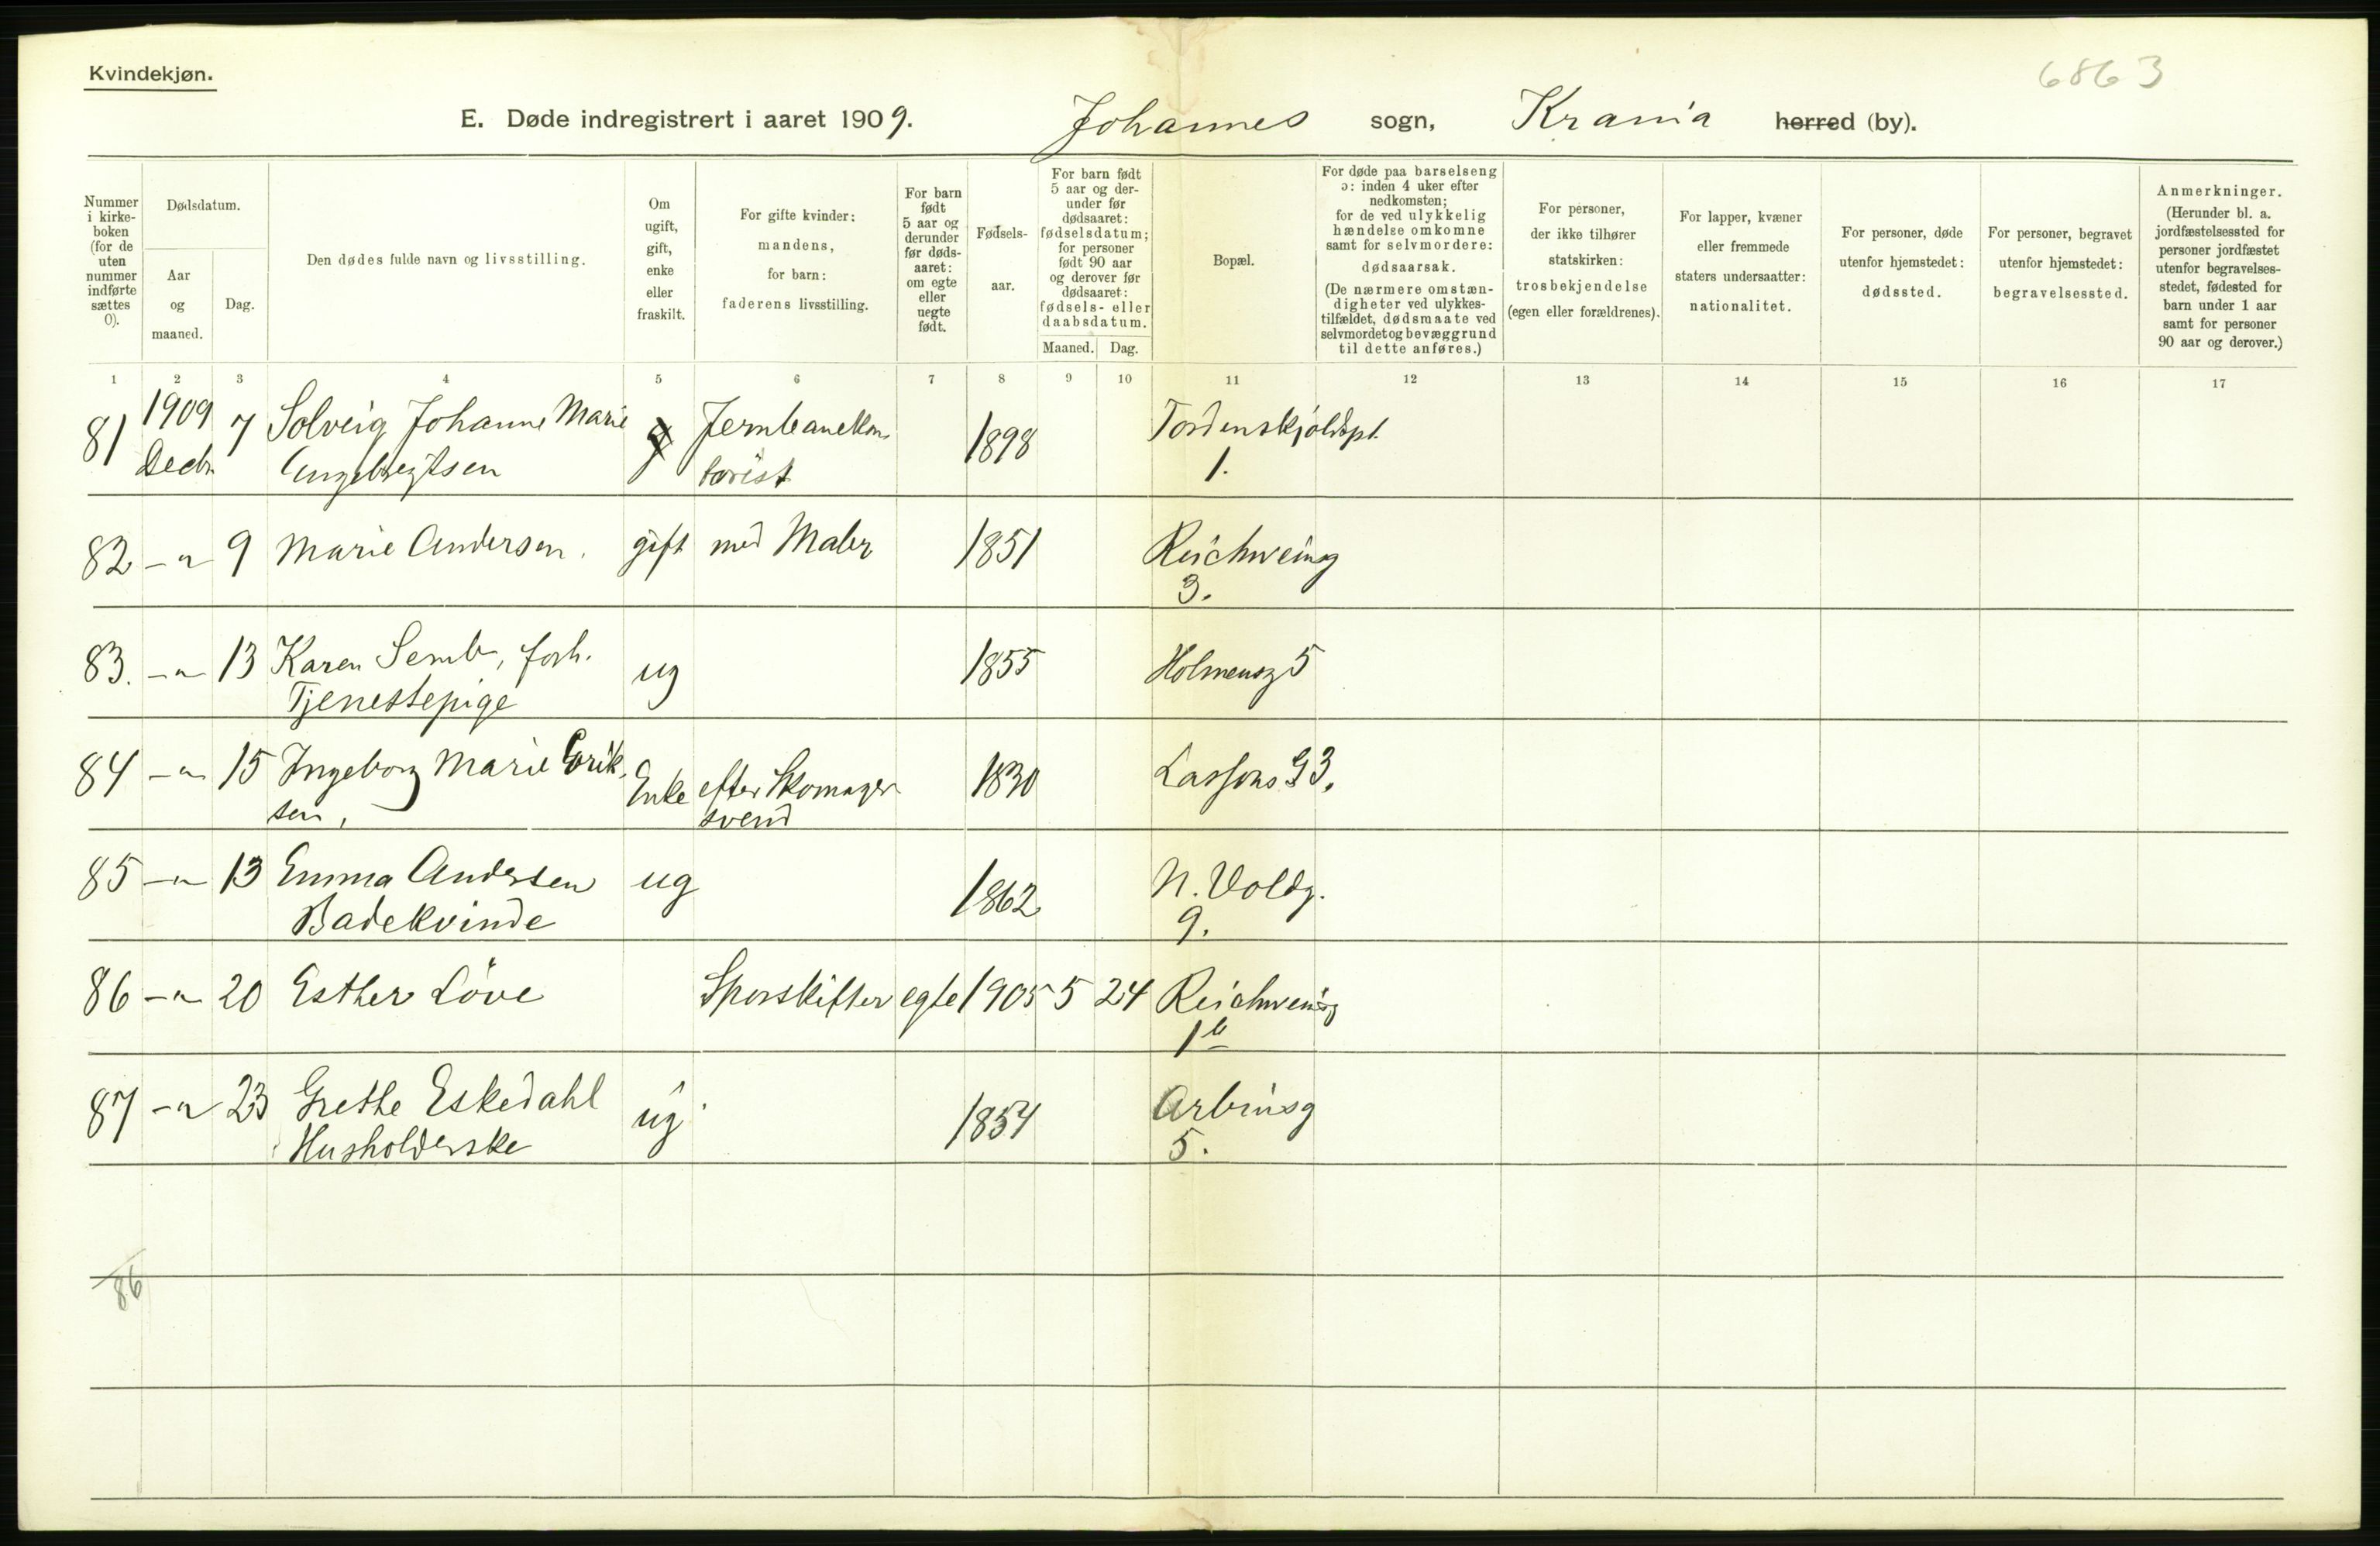 Kvindekjøn.
6863
E. Døde indregistrert i aaret 1909. Johannes sogn, Krania herred (by).
Nummer i kirkeboken (for de uten nummer indførte sættes 0).
Dødsdatum.
Aar og maaned.
Dag.
Den dødes fulde navn og livsstilling.
Om ugift, gift, enke eller fraskilt.
For gifte kvinder: mandens, for barn: faderens livsstilling.
For barn født 5 aar og derunder før dødsaaret: om egte eller uegte født.
Fødselsaar.
For barn født 5 aar og derunder før dødsaaret: fødselsdatum; for personer født 90 aar og derover før dødsaaret: fødsels- eller daabsdatum.
Maaned. Dag.
Bopæl.
For døde paa barselseng ɔ: inden 4 uker efter nedkomsten; for de ved ulykkelig hændelse omkomne samt for selvmordere: dødsaarsak. (De nærmere omstændigheter ved ulykkestilfældet, dødsmaate ved selvmordet og bevæggrund til dette anføres.)
For personer, der ikke tilhører statskirken: trosbekjendelse (egen eller forældrenes).
For lapper, kvæner eller fremmede staters undersaatter: nationalitet.
For personer, døde utenfor hjemstedet: dødssted.
For personer, begravet utenfor hjemstedet: begravelsessted.
Anmerkninger. (Herunder bl. a. jordfæstelsessted for personer jordfæstet utenfor begravelsesstedet, fødested for barn under 1 aar samt for personer 90 aar og derover.)
1 2 3 4 5 6 7 8 9 10 11 12 13 14 15 16 17
81 1909 7 Solveig Johanne Marie Jernbanekon- 1898 Tordenskjoldspl.
Decbr Engebregtsen torist 1.
82 -"- 9 Marie Andersen. gift med Maler 1851 Reichweinsg
3.
83. -"- 13 Karen Semb, forh. ug 1855 Holmensg 5
Tjenestepige
84 -"- 15 Ingeborg Marie Erik- Enke efter Skomager 1830 Lassons G 3.
sen, svend
85 -"- 13 Emma Andersen ug 1862 N. Voldg.
Badekvinde 9.
86 -"- 20 Esther Löve Sporskifter egte 1905 5 24 Reichweinsg
1b
87 -"- 23 Grethe Eskedahl ug 1854 Arbinsg
Husholderske 5.
86